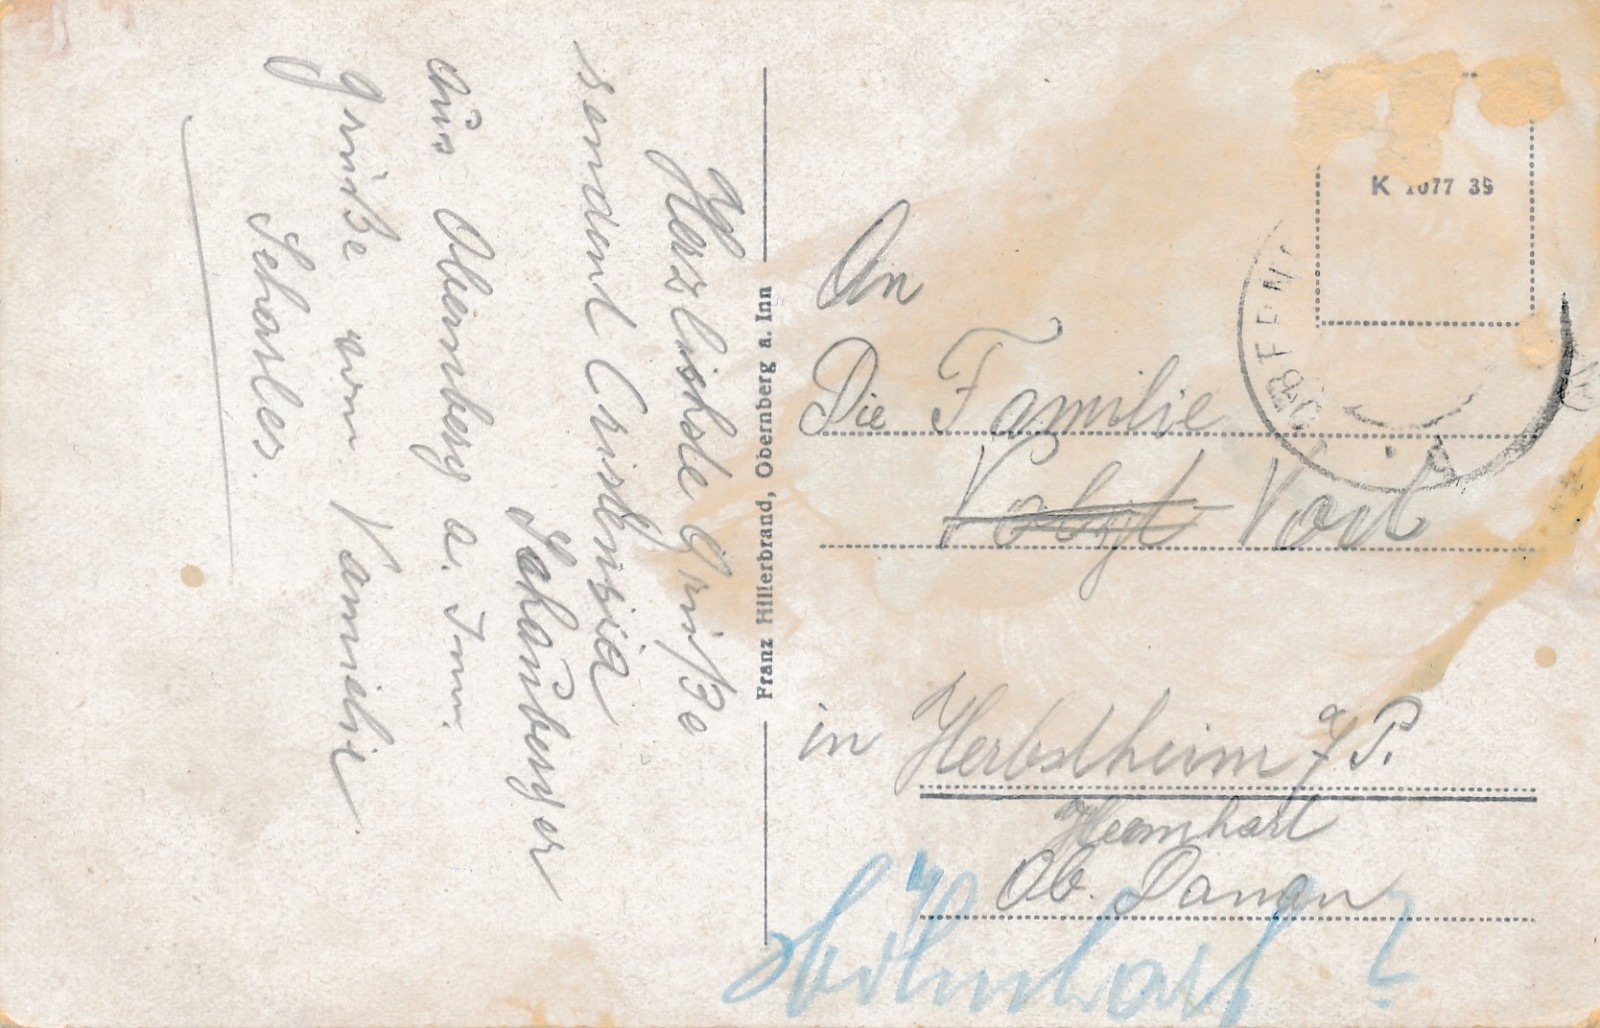 Herzlichste Grüße
sendent Cristensia
Schauberger
aus Obernberg a. Inn.
grüße von Kamielie
Schasler.
Franz Hillerbrand, Obernberg a. Inn
K 1077 39
OBERN
An
Die Familie
Voit
in Herbstheim a/P.
Ob. Danau